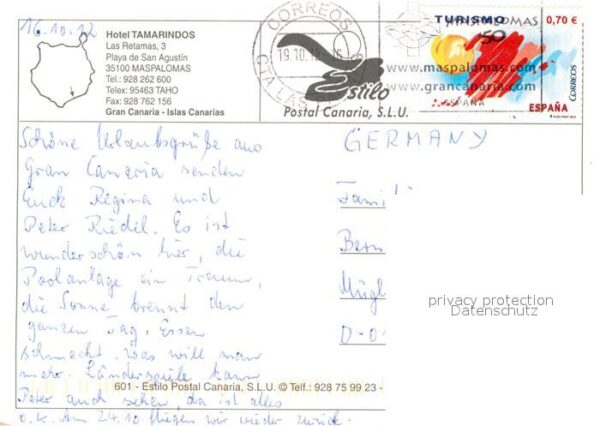 16.10.12
Hotel TAMARINDOS
Las Retamas, 3
Playa de San Agustín
35100 MASPALOMAS
Tel.: 928 262 600
Telex: 95463 TAHO
Fax: 928 762 156
Gran Canaria - Islas Canarias
CORREOS
19.10.12
Estilo
Postal Canaria, S.L.U.
TURISMO
MASPALOMAS
50
0,70 €
www.maspalomas.com
www.grancanaria.com
ESPAÑA
CORREOS
ESPAÑA
Schöne Urlaubsgrüße aus
Gran Canaria senden
Euch Regina und
Peter Riedil. Es ist
wunderschön hier, die
Poolanlage ein Traum,
die Sonne brennt den
ganzen Tag. Essen
schmeckt. Was will man
mehr. Länderspiele kann
Peter auch sehen, da ist alles
o.k. Am 24.10. fliegen wir wieder zurück.
GERMANY
Fami
Bern
Mügl
D-0
privacy protection
Datenschutz
601 - Estilo Postal Canaria, S.L.U. © Telf.: 928 75 99 23 -